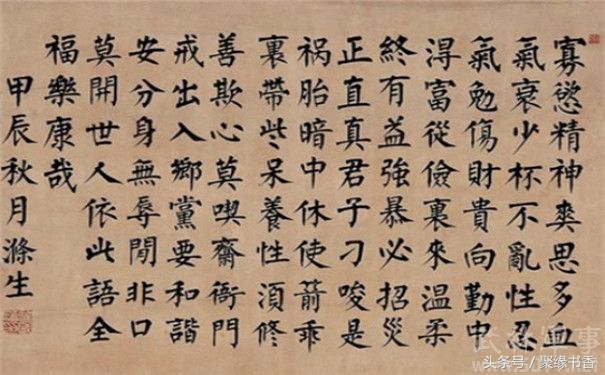 寡慾精神爽思多血
氣衰少杯不亂性忍
氣勉傷財貴向勤中
淂富從儉裏來温柔
終有益強暴必招災
正直真君子刁唆是
祸胎暗中休使箭乖
裏帶些呆養性湏修
善欺心莫喫齋衙門
戒出入鄉黨要和諧
安分身無辱閒非口
莫開世人依此語全
福樂康哉
甲辰秋月滌生
头条号 / 聚缘书香